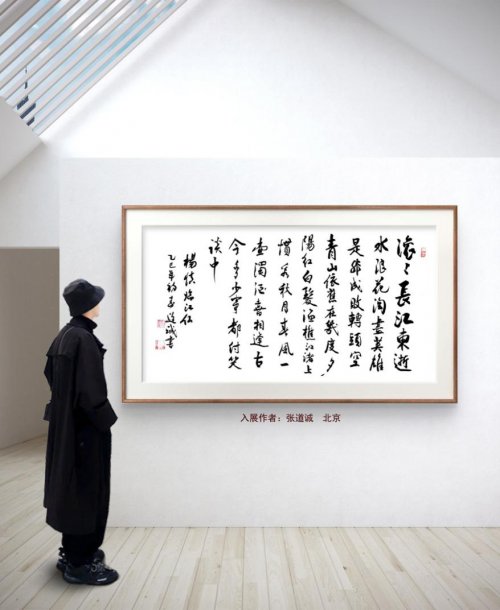 滚々長江東逝
水浪花淘盡英雄
是非成敗轉頭空
青山依舊在幾度夕
陽紅白髮漁樵江渚上
慣看秋月春風一
壺濁酒喜相逢古
今多少事都付笑
談中
楊慎臨江仙
乙巳年初夏道誠書
入展作者：张道诚 北京